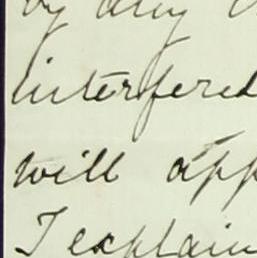 by any
interfered
will app
I explain